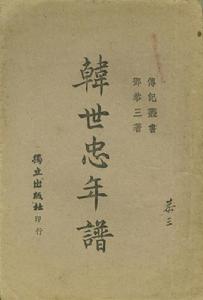 傳記叢書
鄧恭三著
韓世忠年譜
獨立出版社印行
恭三